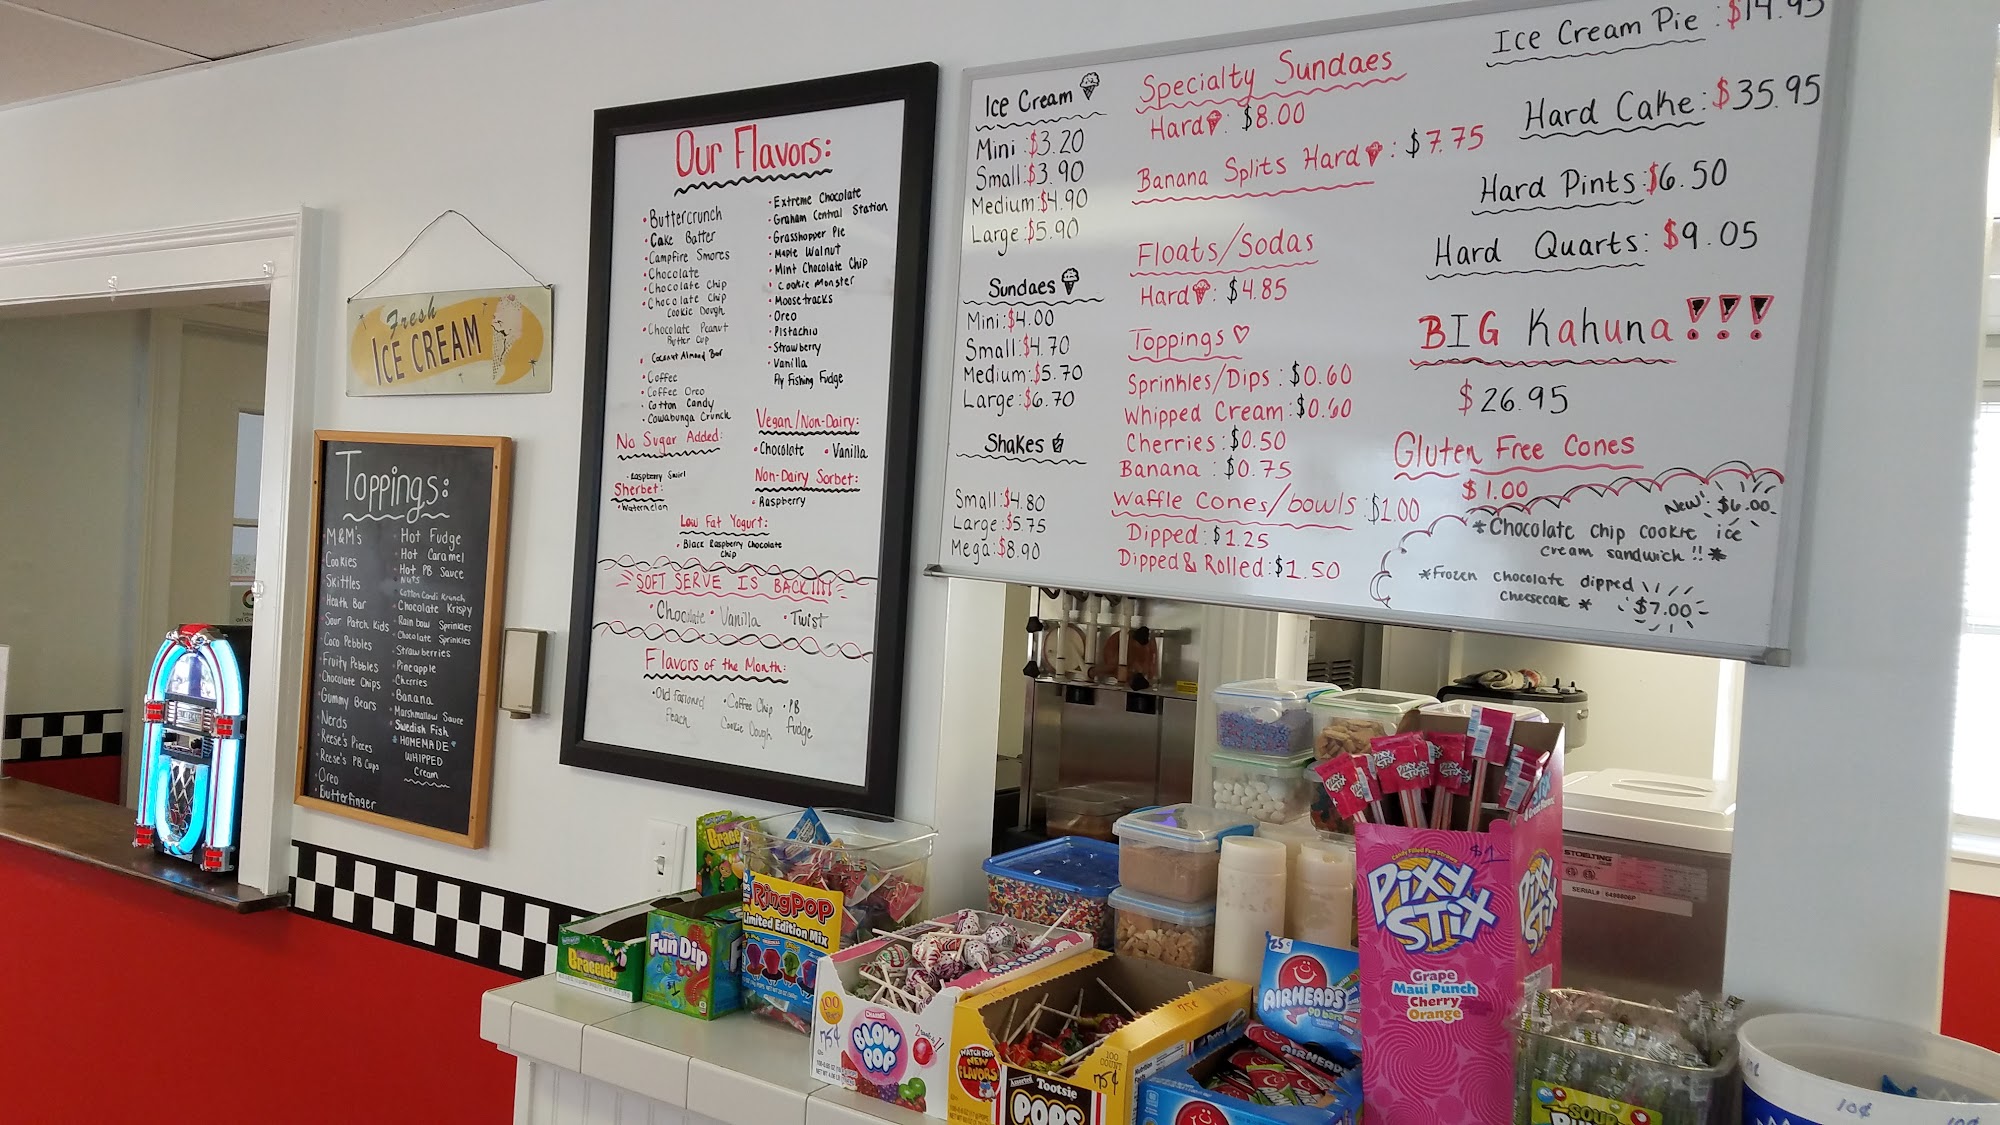 Fresh
ICE CREAM
Toppings:
M&M's
Cookies
Skittles
Heath Bar
Sour Patch Kids
Coco Pebbles
Fruity Pebbles
Chocolate Chips
Gummy Bears
Nerds
Reese's Pieces
Reese's PB Cups
Oreo
Butterfinger
Hot Fudge
Hot Caramel
Hot PB Sauce
Nuts
Cotton Candi Krunch
Chocolate Krispy
Rainbow Sprinkles
Chocolate Sprinkles
Strawberries
Pineapple
Cherries
Banana
Marshmallow Sauce
Swedish Fish
*HOMEMADE*
WHIPPED
Cream
Our Flavors:
•Buttercrunch
•Cake Batter
•Campfire Smores
•Chocolate
•Chocolate Chip
•Chocolate Chip
Cookie Dough
•Chocolate Peanut
Butter Cup
•Coconut Almond Bar
•Coffee
•Coffee Oreo
•Cotton Candy
•Cowabunga Crunch
No Sugar Added:
•Raspberry Swirl
Sherbet:
•Watermelon
•Extreme Chocolate
•Graham Central Station
•Grasshopper Pie
•Maple Walnut
•Mint Chocolate Chip
•Cookie Monster
•Moosetracks
•Oreo
•Pistachio
•Strawberry
•Vanilla
Fly Fishing Fudge
Vegan/Non-Dairy:
•Chocolate •Vanilla
Non-Dairy Sorbet:
•Raspberry
Low Fat Yogurt:
•Black Raspberry Chocolate
Chip
SOFT SERVE IS BACK!!!!
•Chocolate •Vanilla •Twist
Flavors of the Month:
•Old Fasioned
Peach
•Coffee Chip
Cookie Dough
•PB
fudge
Ice Cream
Mini:$3.20
Small:$3.90
Medium:$4.90
Large:$5.90
Sundaes
Mini:$4.00
Small:$4.70
Medium:$5.70
Large:$6.70
Shakes
Small:$4.80
Large:$5.75
Mega:$8.90
Specialty Sundaes
Hard: $8.00
Banana Splits Hard: $7.75
Floats/Sodas
Hard: $4.85
Toppings
Sprinkles/Dips: $0.60
Whipped Cream: $0.60
Cherries: $0.50
Banana: $0.75
Waffle Cones/bowls: $1.00
Dipped: $1.25
Dipped & Rolled: $1.50
Ice Cream Pie: $14.95
Hard Cake: $35.95
Hard Pints: $6.50
Hard Quarts: $9.05
BIG Kahuna!!!
$26.95
Gluten Free Cones
$1.00
New! $6.00
*Chocolate chip cookie ice
cream sandwich!!*
*Frozen chocolate dipped
cheesecake*
$7.00
Bracelet
Fun Dip
$1
RingPOP
Limited Edition Mix
100
75¢
CHARMS
BLOW
POP
75¢
WATCH FOR
NEW
FLAVORS
Assorted Tootsie
POPS
100
COUNT
75¢
25¢
AIRHEADS
90 bars
$1
Candy Filled Fun Straws
PIXY
STIX
Grape
Maui Punch
Cherry
Orange
STOELTING
SERIAL#
SOUR
10¢
10¢